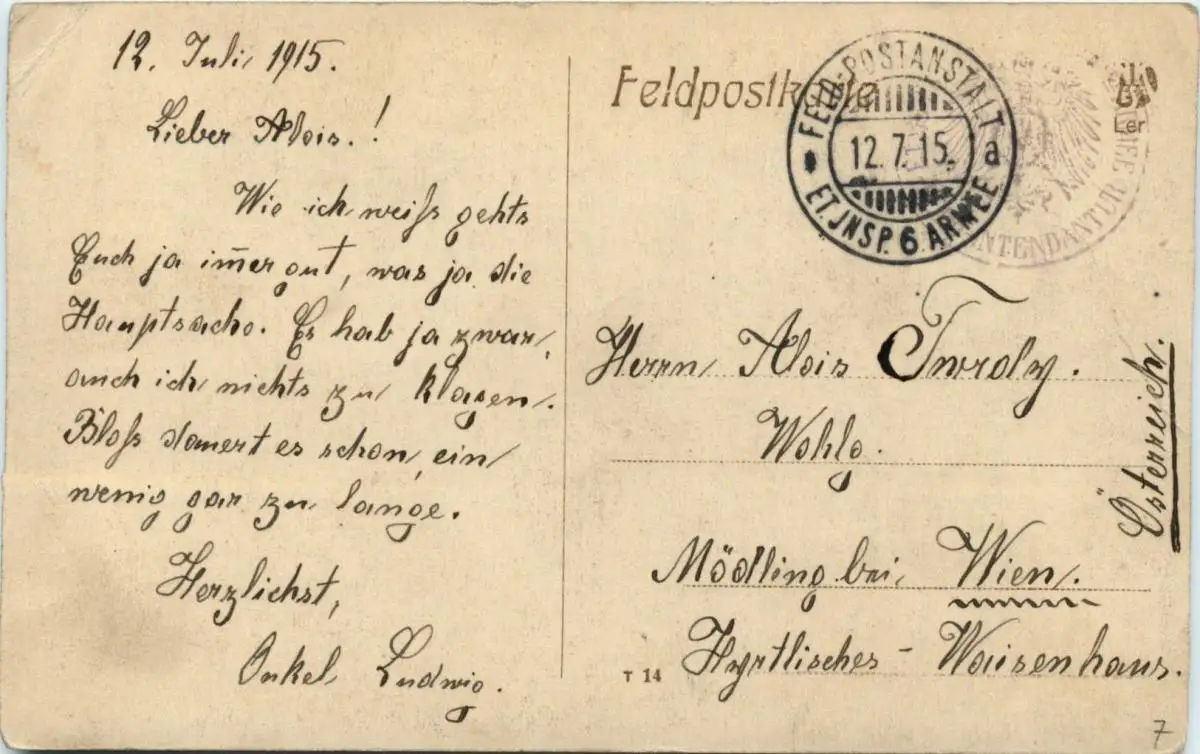 12. Juli 1915.
Lieber Alois.!
Wie ich weiß gehts
Euch ja im̅er gut, was ja die
Hauptsache. Es hab ja zwar
auch ich nichts zu klagen.
Bloß dauert es schon ein
wenig gar zu lange.
Herzlichst,
Onkel Ludwig.
Feldpostkarte
FELD-POSTANSTALT
12.7.15. a
ET.JNSP. 6 ARMEE
INTENDANTUR
Ler
Herrn Alois Twrdy.
Wohlg.
Mödling bei Wien.
Hyrtlisches - Waisenhaus.
Österreich.
T 14
7